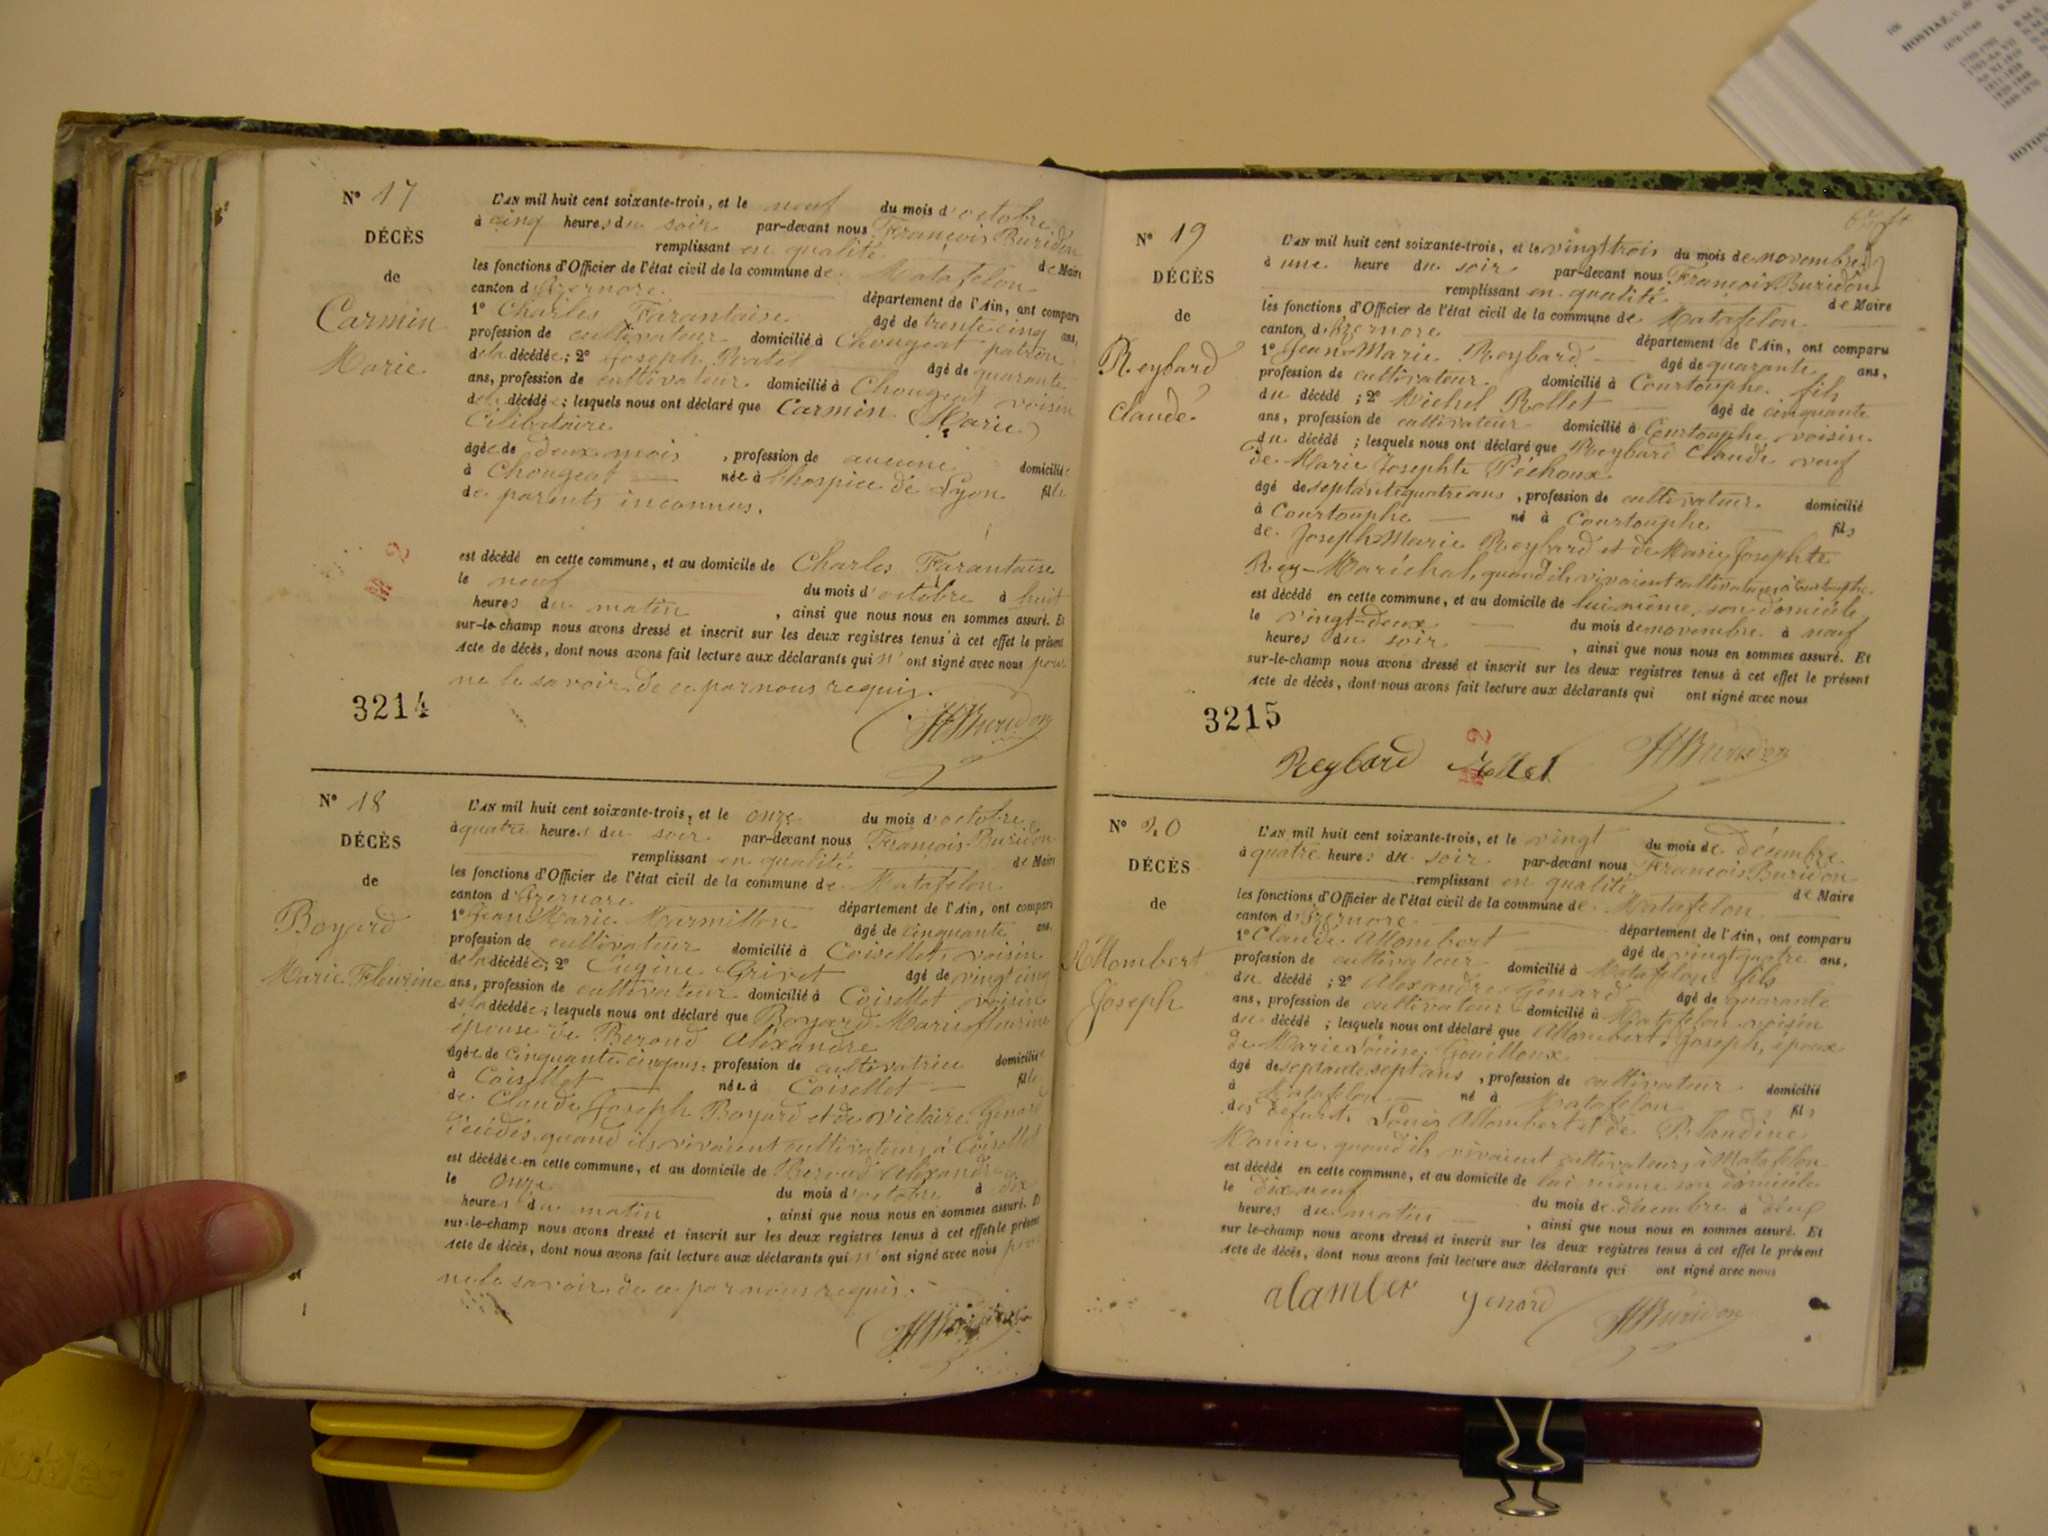 N° 17
DÉCÈS
de
Carmin
Marie
L'AN mil huit cent soixante-trois, et le neuf du mois d'octobre
à cinq heures du soir par-devant nous François Buridon
remplissant en qualité de Maire
les fonctions d'Officier de l'état civil de la commune de Matafelon
canton d'Izernore département de l'Ain, ont comparu
1° Charles Tarantaise âgé de trente cinq ans,
profession de cultivateur domicilié à Chougeat patron
de la décédée ; 2° Joseph Ratel âgé de quarante
ans, profession de cultivateur domicilié à Chougeat voisin
de la décédée ; lesquels nous ont déclaré que Carmin Marie
Célibataire
âgée de deux mois , profession de aucune domiciliée
à Chougeat née à l'hospice de Lyon fille
de parents inconnus.
est décédé en cette commune, et au domicile de Charles Tarantaise
le neuf du mois d'octobre à huit
heures du matin , ainsi que nous nous en sommes assuré. Et
sur-le-champ nous avons dressé et inscrit sur les deux registres tenus à cet effet le présent
Acte de décès, dont nous avons fait lecture aux déclarants qui n'ont signé avec nous pour
ne le savoir de ce par nous requis.
3214
Buridon
N° 18
DÉCÈS
de
Boyard
Marie Fleurine
L'AN mil huit cent soixante-trois, et le onze du mois d'octobre
à quatre heures du soir par-devant nous François Buridon
remplissant en qualité de Maire
les fonctions d'Officier de l'état civil de la commune de Matafelon
canton d'Izernore département de l'Ain, ont comparu
1° Jean Marie Marmillon âgé de cinquante ans,
profession de cultivateur domicilié à Coisellet, voisin
de la décédée; 2° Eugène Grivet âgé de vingt cinq
ans, profession de cultivateur domicilié à Coisellet voisin
de la décédée ; lesquels nous ont déclaré que Boyard Marie fleurine
épouse de Beroud Alexandre
âgée de cinquante cinq ans, profession de cultivatrice domiciliée
à Coisellet née à Coisellet fille
de Claude Joseph Boyard et de Victoire Génard
décédés, quand ils vivaient cultivateurs à Coisellet
est décédée en cette commune, et au domicile de Beroud Alexandre
le onze du mois d'octobre à dix
heures du matin , ainsi que nous nous en sommes assuré. Et
sur-le-champ nous avons dressé et inscrit sur les deux registres tenus à cet effet le présent
Acte de décès, dont nous avons fait lecture aux déclarants qui n'ont signé avec nous pour
ne le savoir de ce par nous requis.
N° 19
DÉCÈS
de
Reybard
Claude
L'AN mil huit cent soixante-trois, et le vingt trois du mois de novembre
à une heure du soir par-devant nous François Buridon
remplissant en qualité de Maire
les fonctions d'Officier de l'état civil de la commune de Matafelon
canton d'Izernore département de l'Ain, ont comparu
1° Jean Marie Reybard âgé de quarante ans,
profession de cultivateur domicilié à Courtouphe fils
du décédé ; 2° Michel Rollet âgé de cinquante
ans, profession de cultivateur domicilié à Courtouphe voisin
du décédé ; lesquels nous ont déclaré que Reybard Claude veuf
de Marie Josephte Péchoux
âgé de septante quatre ans , profession de cultivateur domicilié
à Courtouphe né à Courtouphe fils
de Joseph Marie Reybard et de Marie Josephte
Rey-Maréchal, quand ils vivaient cultivateurs à Courtouphe
est décédé en cette commune, et au domicile de lui même, son domicile
le vingt-deux du mois de novembre à neuf
heures du soir , ainsi que nous nous en sommes assuré. Et
sur-le-champ nous avons dressé et inscrit sur les deux registres tenus à cet effet le présent
Acte de décès, dont nous avons fait lecture aux déclarants qui ont signé avec nous
3215
Reybard Rollet Buridon
N° 20
DÉCÈS
de
Allombert
Joseph
L'AN mil huit cent soixante-trois, et le vingt du mois de décembre
à quatre heures du soir par-devant nous François Buridon
remplissant en qualité de Maire
les fonctions d'Officier de l'état civil de la commune de Matafelon
canton d'Izernore département de l'Ain, ont comparu
1° Claude Allombert âgé de vingt quatre ans,
profession de cultivateur domicilié à Matafelon fils
du décédé ; 2° Alexandre Génard âgé de quarante
ans, profession de cultivateur domicilié à Matafelon voisin
du décédé ; lesquels nous ont déclaré que Allombert Joseph, époux
de Marie Louise Gouilloux
âgé de septante sept ans , profession de cultivateur domicilié
à Matafelon né à Matafelon fils
des défunts Louis Allombert et de Blandine
Monin, quand ils vivaient cultivateurs à Matafelon
est décédé en cette commune, et au domicile de lui même son domicile
le dix neuf du mois de décembre à neuf
heures du matin , ainsi que nous nous en sommes assuré. Et
sur le-champ nous avons dressé et inscrit sur les deux registres tenus à cet effet le présent
Acte de décès, dont nous avons fait lecture aux déclarants qui ont signé avec nous
alamber genard Buridon
HOSTIAZ